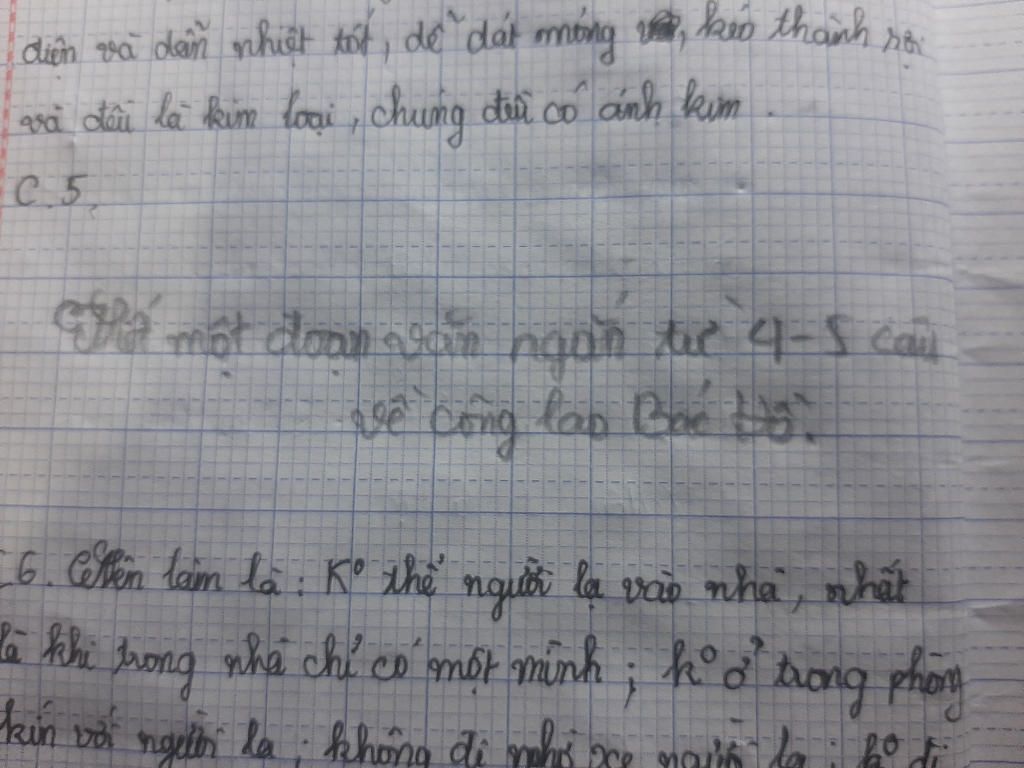 điện và dẫn nhiệt tốt, dễ dát mỏng, kéo thành sợi
và đều là kim loại, chúng đều có ánh kim.
C.5.
một đoạn văn ngắn từ 4-5 câu
về công lao Bác Hồ.
6. nên làm là: K° thể người lạ vào nhà, nhất
là khi trong nhà chỉ có một mình; k° ở trong phòng
kín với người lạ; không đi nhờ xe người lạ; k° đi